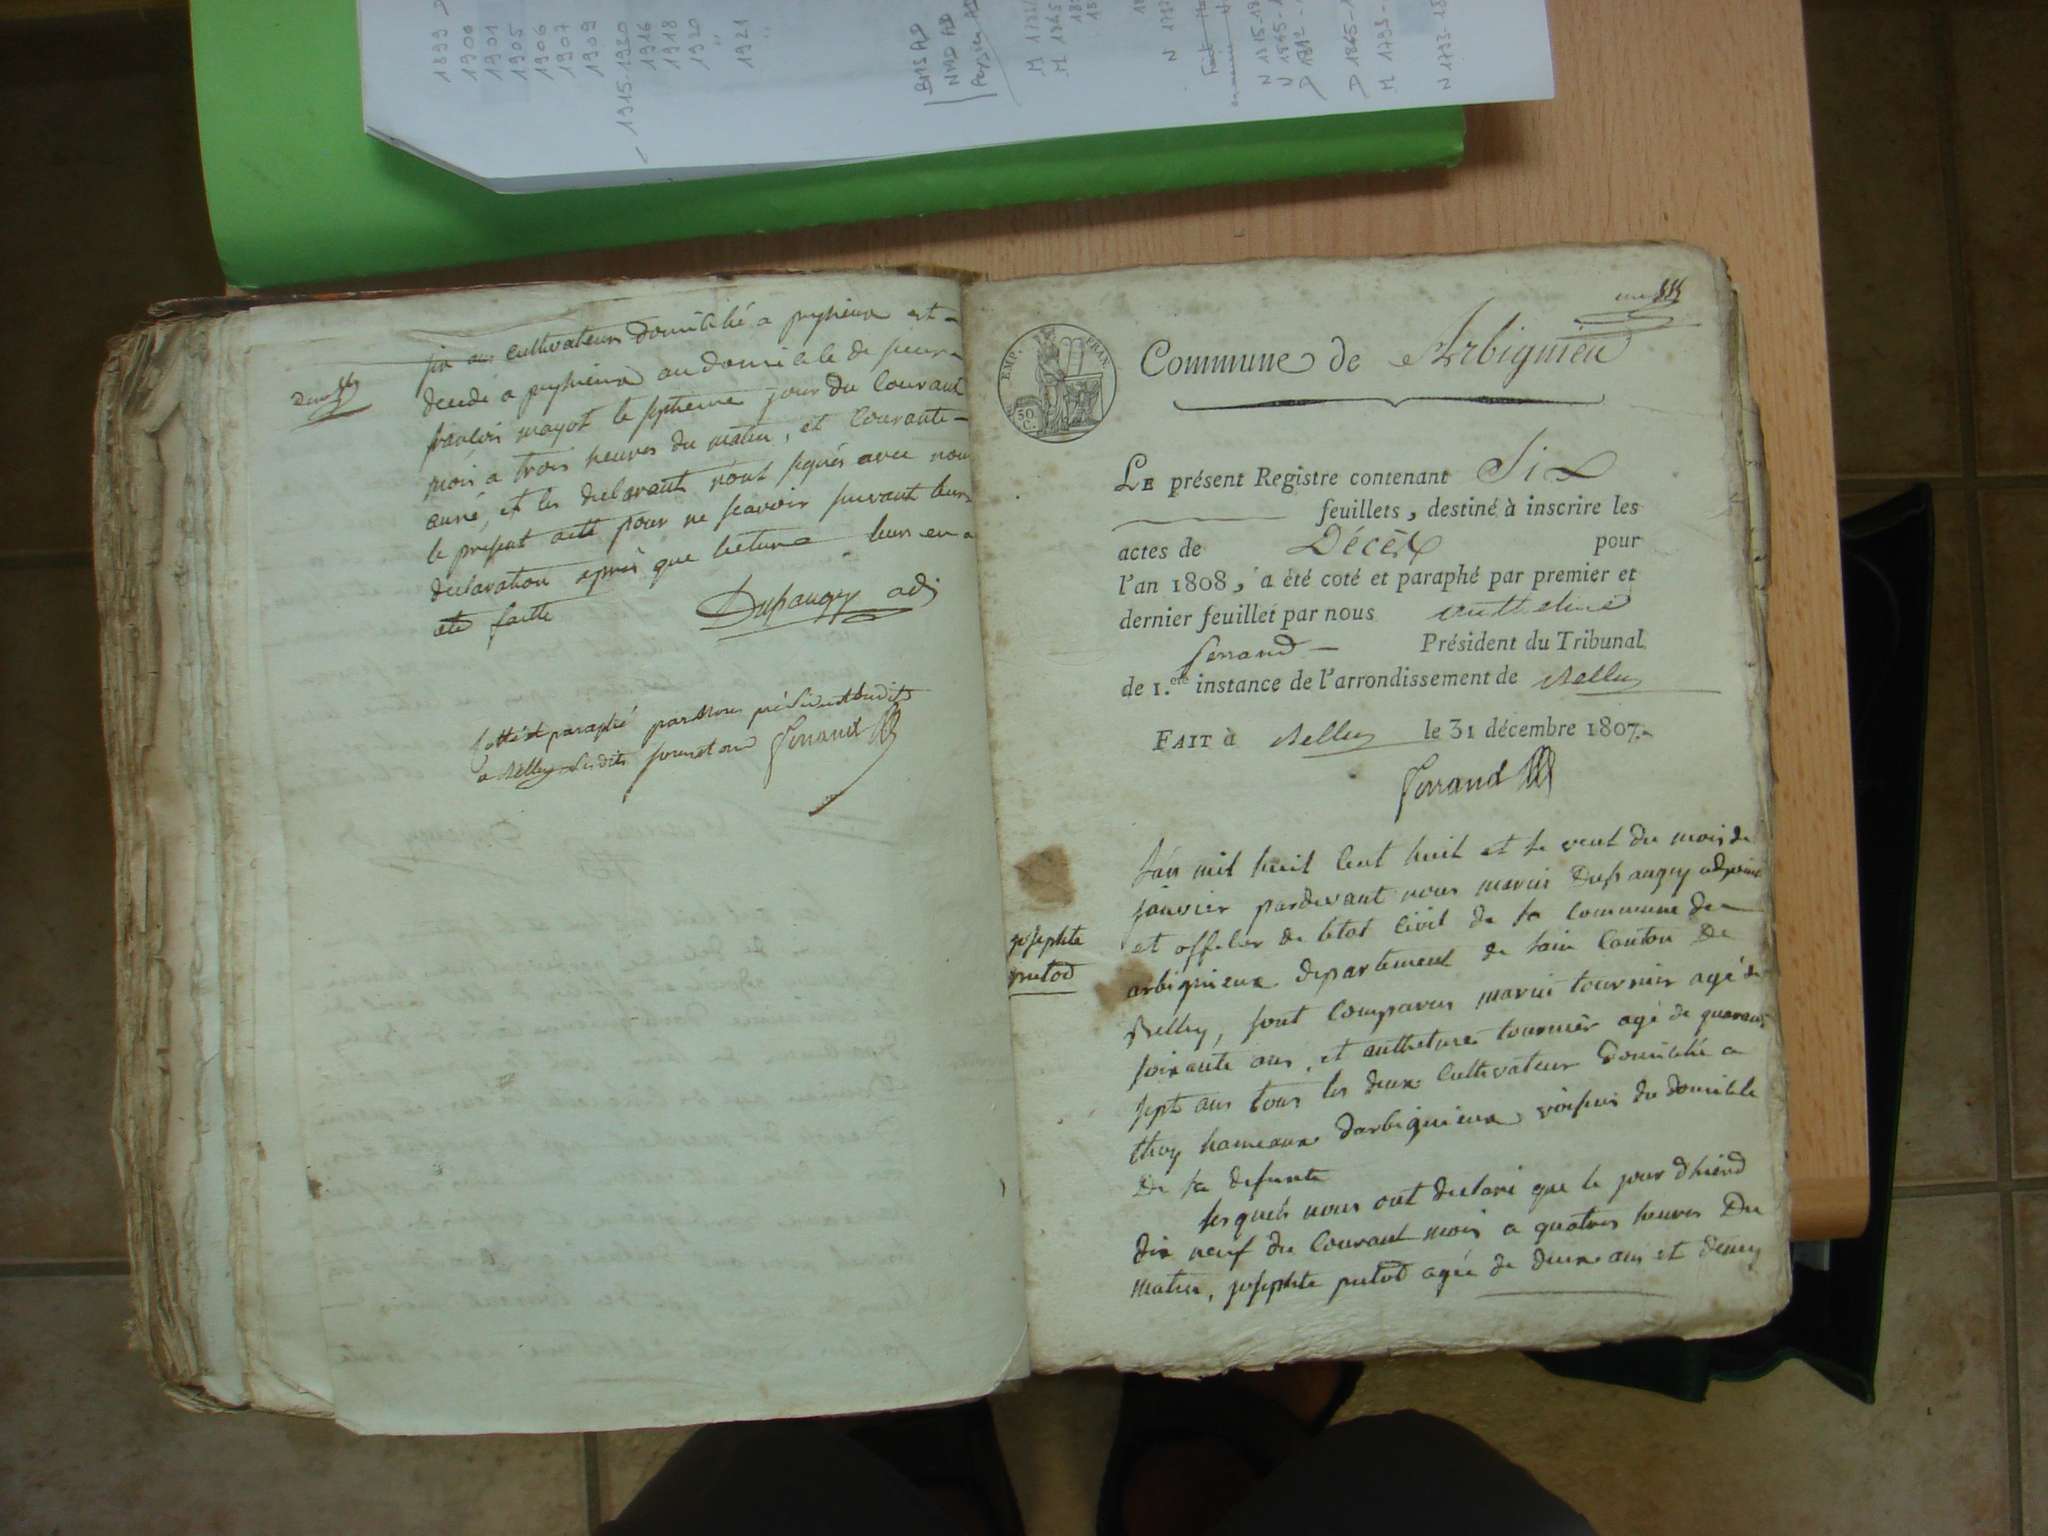 1899
1900
1901
1905
1906
1907
1909
1915-1920
1916
1918
1920
"
1921
"
BMS AD
NMD AD
N 1793-18
Deux
six ans cultivateur domicilié a peyzieux est
decedé a peyzieux au domicile de sieur
francois mayot le septieme jour du Courant
mois a trois heures du matin, et Courante
année, et les declarants n'ont signés avec nous
le present acte pour ne scavoir suivant leur
declaration apres que lecture leurs en a
eté faitte
Dupaugey adj
Cotté et paraphé par nous président susdit
a Belley lesdits jour et an Ferrand
une
EMP. FRAN.
50 C.
Commune de Arbignieu
LE présent Registre contenant Six
feuillets, destiné à inscrire les
actes de Décès pour
l'an 1808, a été coté et paraphé par premier et
dernier feuillet par nous Anthelme
ferrand Président du Tribunal
de 1.ere instance de l'arrondissement de Belley
FAIT à Belley le 31 décembre 1807.
Ferrand
josephte
putod
Lan mil huit Cent huit et le vent du mois de
janvier pardevant nous marin Dupaugey adjoint
et officier de letat Civil de la Commune de
arbignieux departement de lain Canton De
Belley, sont Comparus marin tournier agé de
soixante ans, et anthelme tournier agé de quarante
sept ans tous les deux Cultivateur Domicilié a
thoy hameaux darbignieux voisins du domicile
De la defunte
lesquels nous ont declaré que le jour dhierd
dix neuf du Courant mois a quatres heures Du
matin, josephte putod agée de deux ans et demy